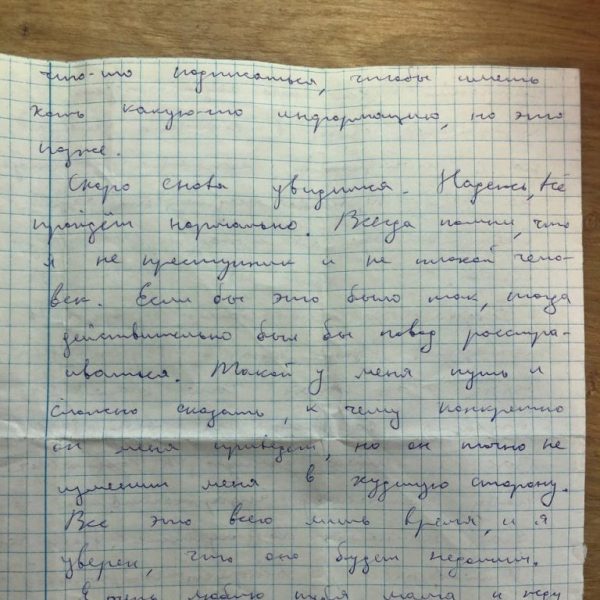 что-то подписаться, чтобы иметь
хоть какую-то информацию, но это
позже.
Скоро снова увидимся. Надеюсь, всё
пройдёт нормально. Всегда помни, что
я не преступник и не плохой чело-
век. Если бы это было так, тогда
действительно был бы повод расстра-
иваться. Такой у меня путь и
сложно сказать, к чему конкретно
он меня приведёт, но он точно не
изменит меня в худшую сторону.
Всё это всего лишь время, и я
уверен, что оно будет недолгим.
Я очень люблю тебя мама и жду